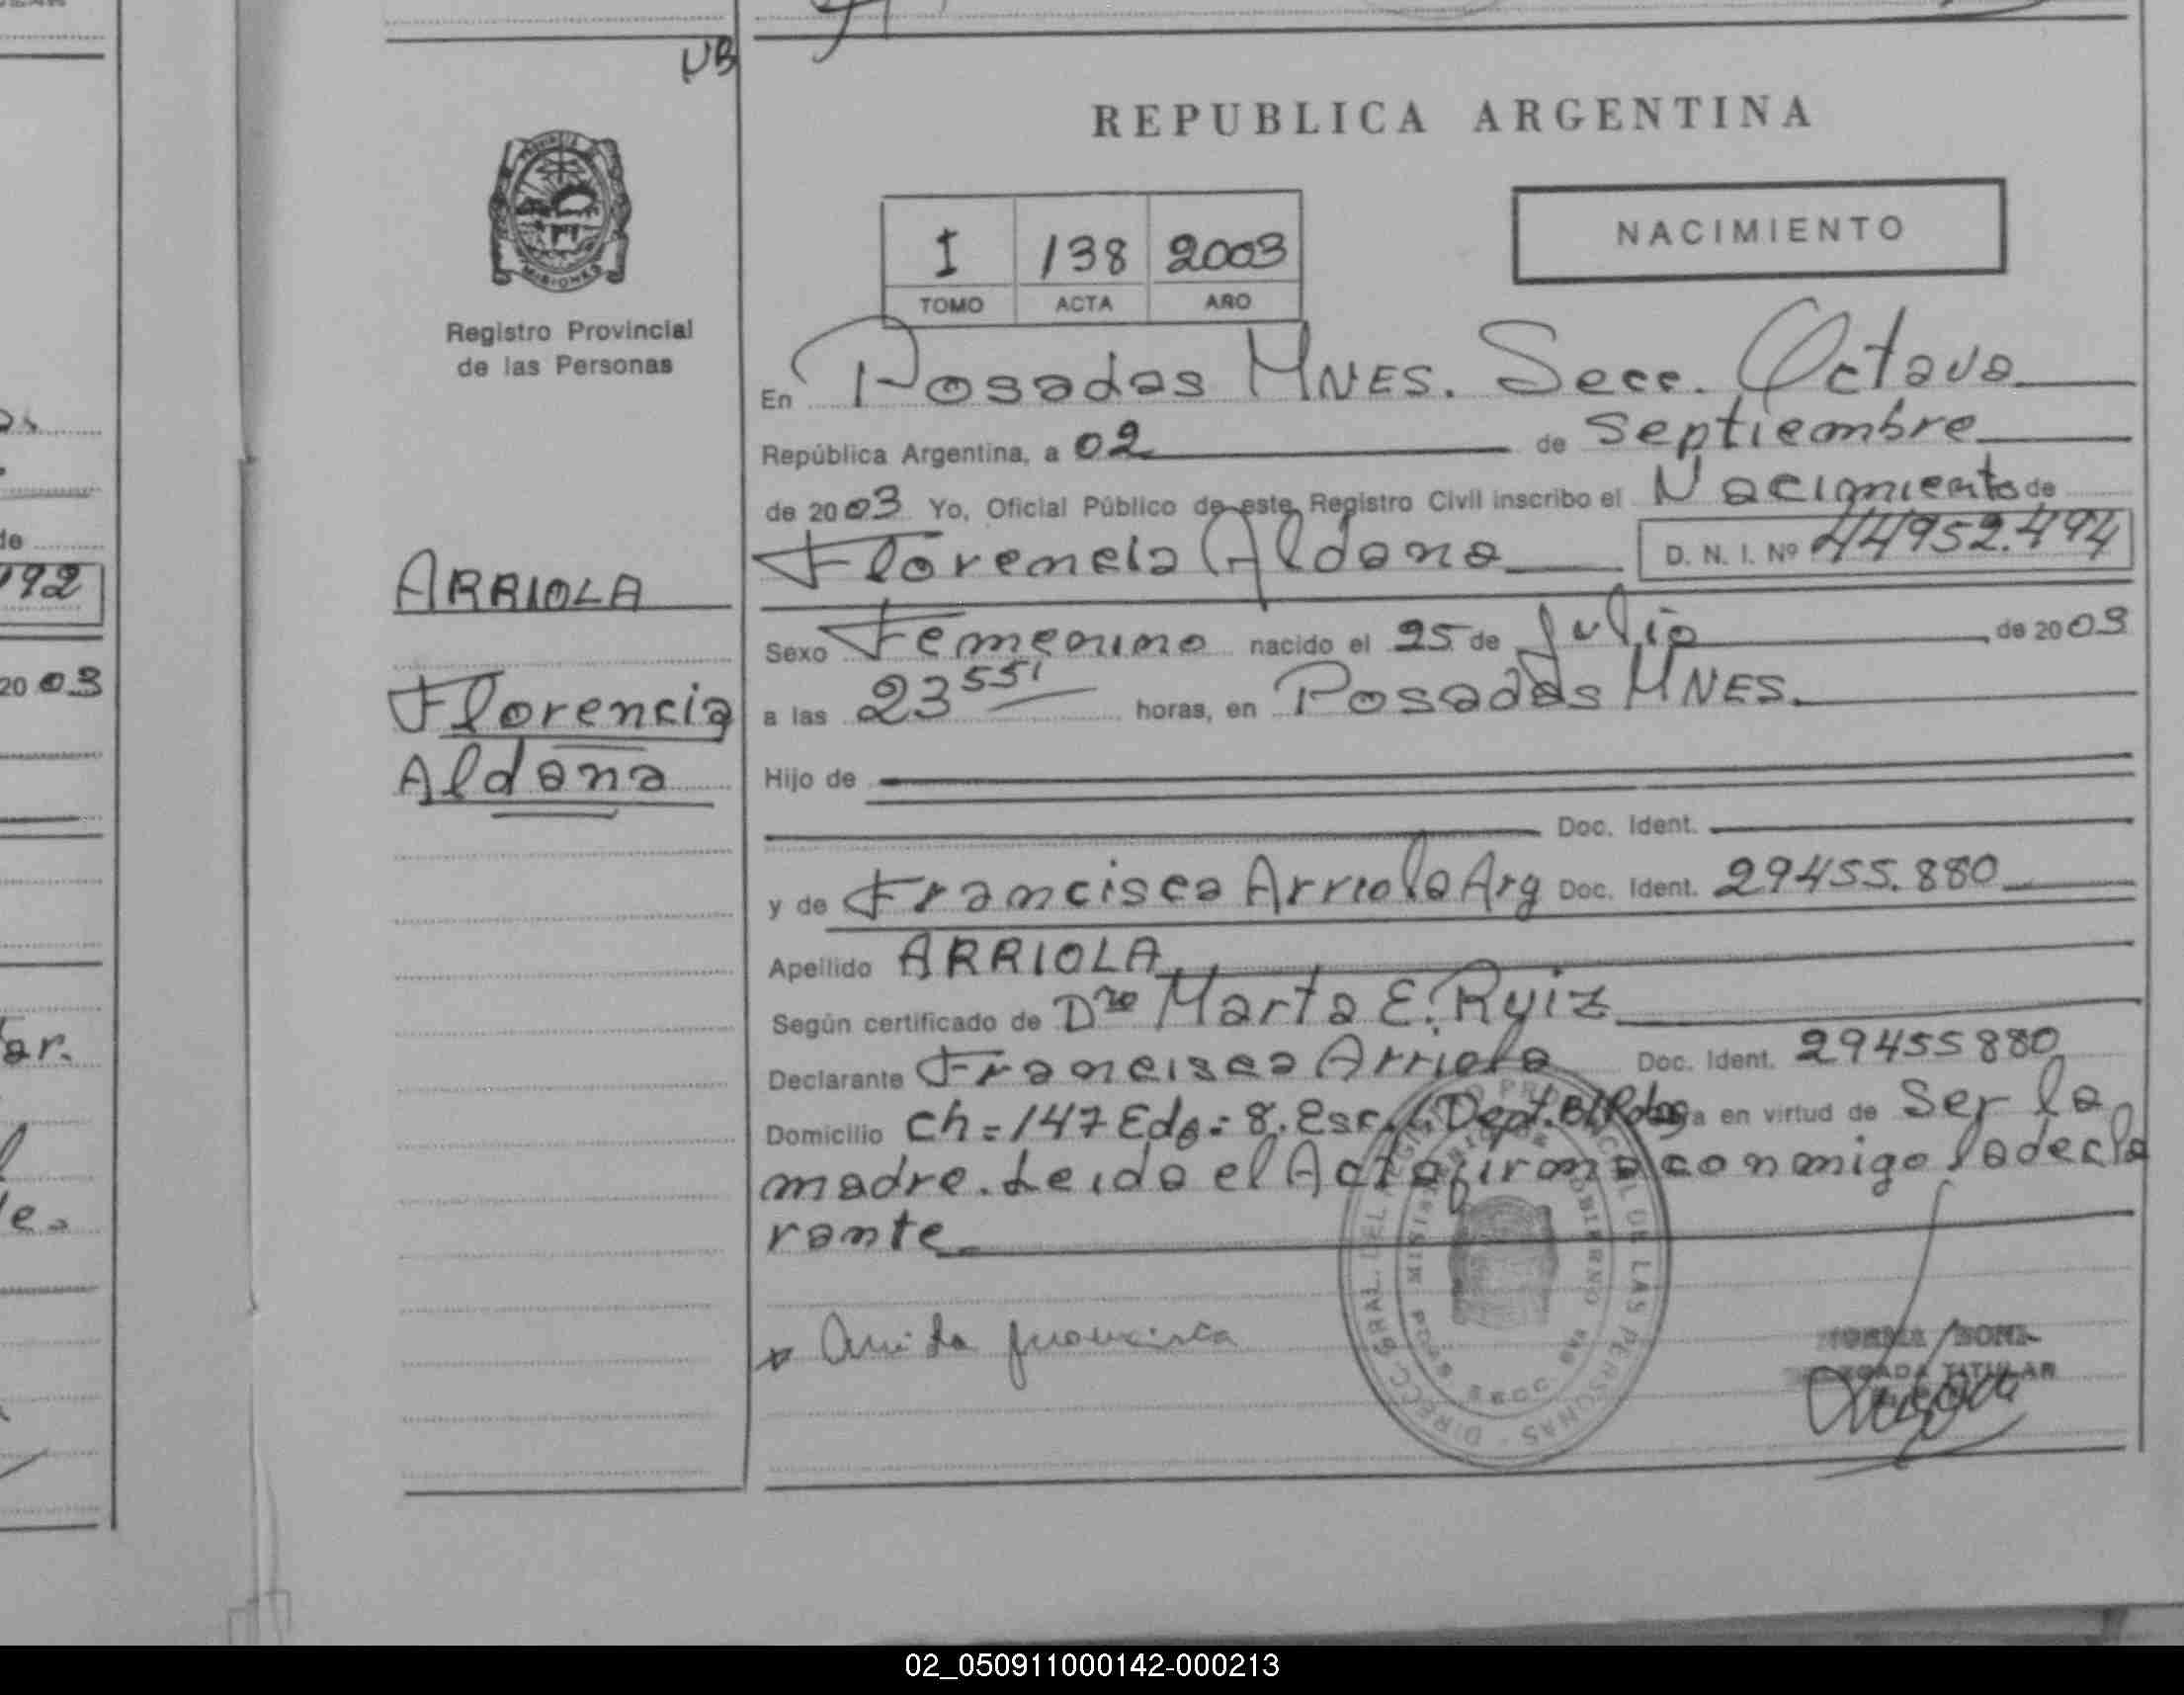 UB
REPUBLICA ARGENTINA
PROVINCIA DE MISIONES
Registro Provincial
de las Personas
NACIMIENTO
I 138 2003
TOMO ACTA AÑO
En Posadas MNES. Secc. Octava
República Argentina, a 02 de Septiembre
de 2003 Yo, Oficial Público de este Registro Civil inscribo el Nacimiento de
Florencia Aldana D. N. I. Nº 44952.494
ARRIOLA
Florencia
Aldana
Sexo Femenino nacido el 25 de Julio de 2003
a las 23 55' horas, en Posadas MNES.
Hijo de
Doc. Ident.
y de Francisca Arriola Arg Doc. Ident. 29455.880
Apellido ARRIOLA
Según certificado de Dra Marta E. Ruiz
Declarante Francisca Arriola Doc. Ident. 29455880
Domicilio Ch=147 Edo=8. Esc. Dept. en virtud de Ser la
madre. Leida el Acta firma conmigo la decla
rante
Francisca
DIRECC. GRAL. DEL REGISTRO PROVINCIAL DE LAS PERSONAS
MINISTERIO DE GOBIERNO
TITULAR
192
20 03
ar.
02_050911000142-000213